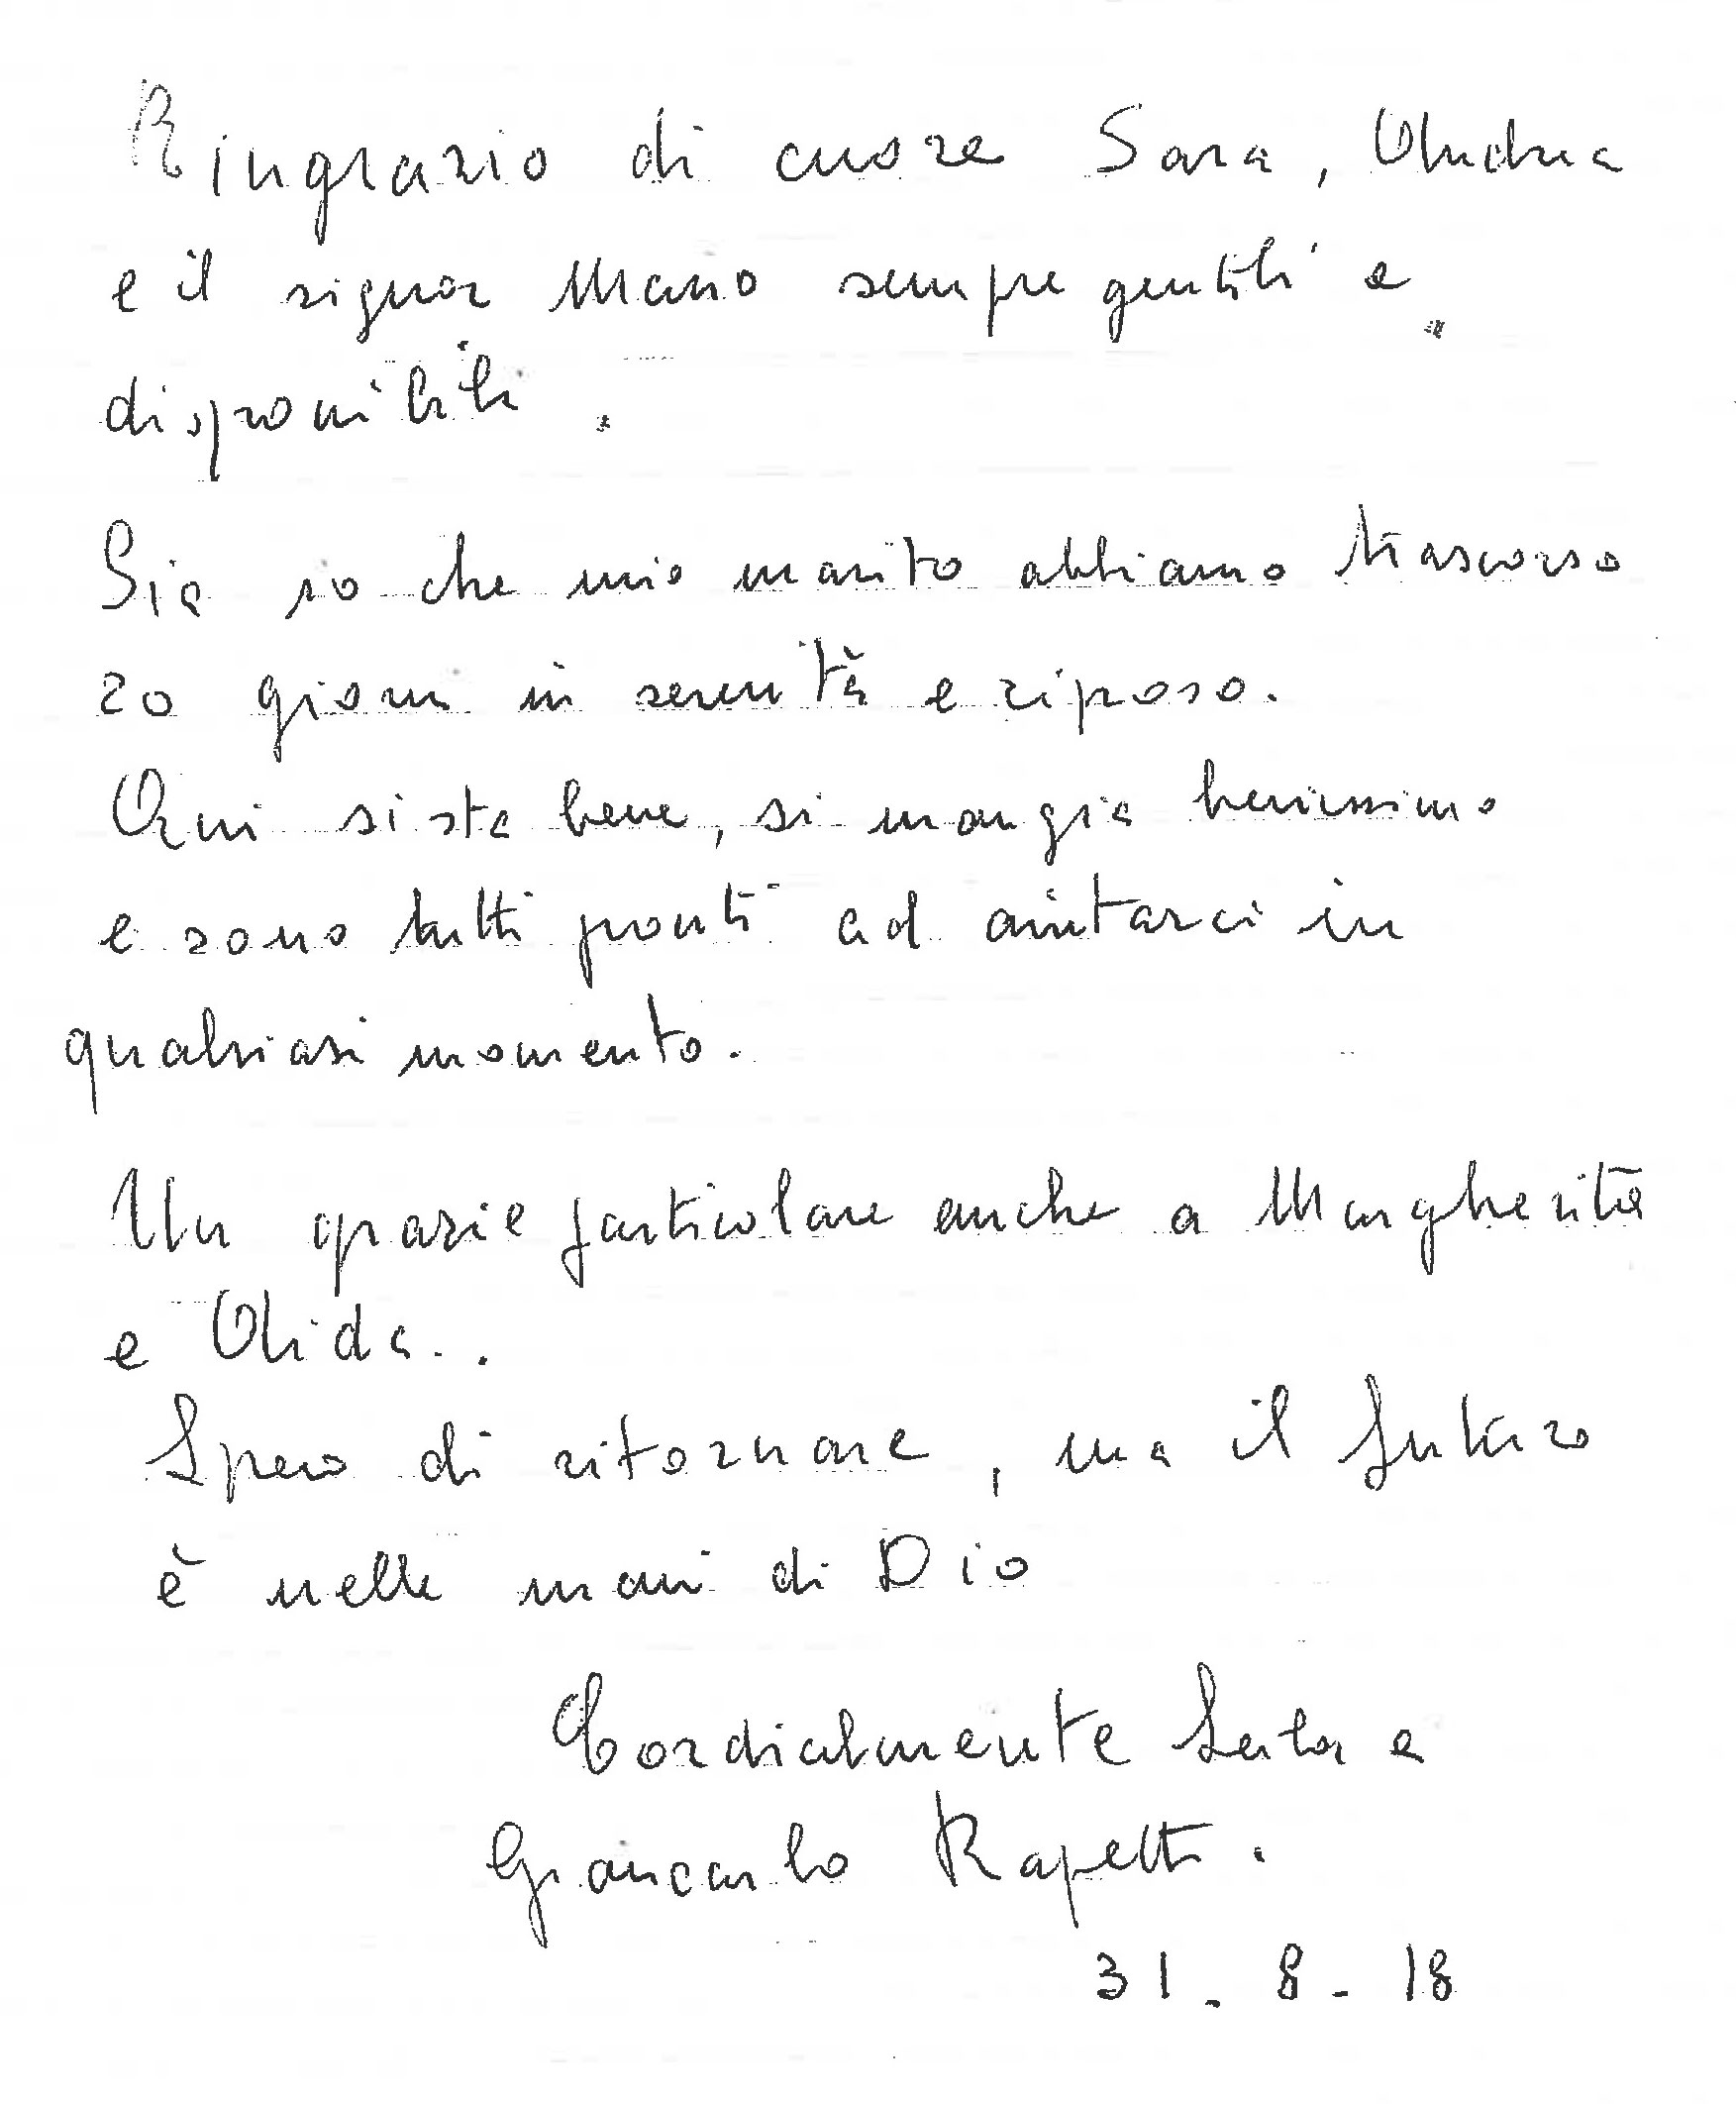 Ringrazio di cuore Sara, Andrea
e il signor Mario sempre gentili e
disponibili.
Sia io che mio marito abbiamo trascorso
20 giorni in serenità e riposo.
Qui si sta bene, si mangia benissimo
e sono tutti pronti ad aiutarci in
qualsiasi momento.
Un grazie particolare anche a Margherita
e Alida..
Spero di ritornare, ma il futuro
è nelle mani di Dio
Cordialmente e
Giancarlo Rapetti.
31.8-18